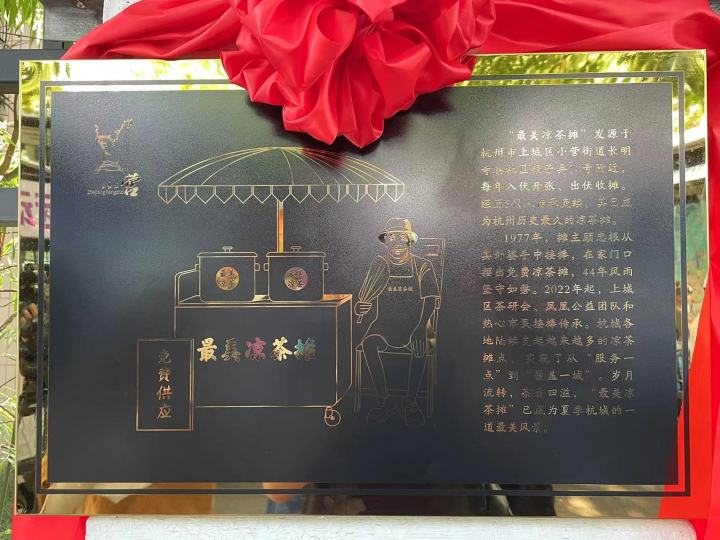 Zhejiang Hangzhou
最美
凉茶
最美
凉茶
最美凉茶摊
最美凉茶摊
免费供应
“最美凉茶摊”发源于
杭州市上城区小营街道长明
寺巷社区
号附近，
每年入伏开张、出伏收摊。
传承
，已
为杭州历史最久的凉茶摊。
1977年，摊主顾忠根从
其外婆手中接棒，在家门口
摆出免费凉茶摊，44年风雨
坚守如磐。2022年起，上城
区茶研会、凤凰公益团队和
热心市民接棒传承。杭城各
地陆续支起越来越多的凉茶
摊点，实现了从“服务一
点”到“覆盖一城”。岁月
流转，茶香四溢，“最美凉
茶摊”已成为夏季杭城的一
道最美风景。